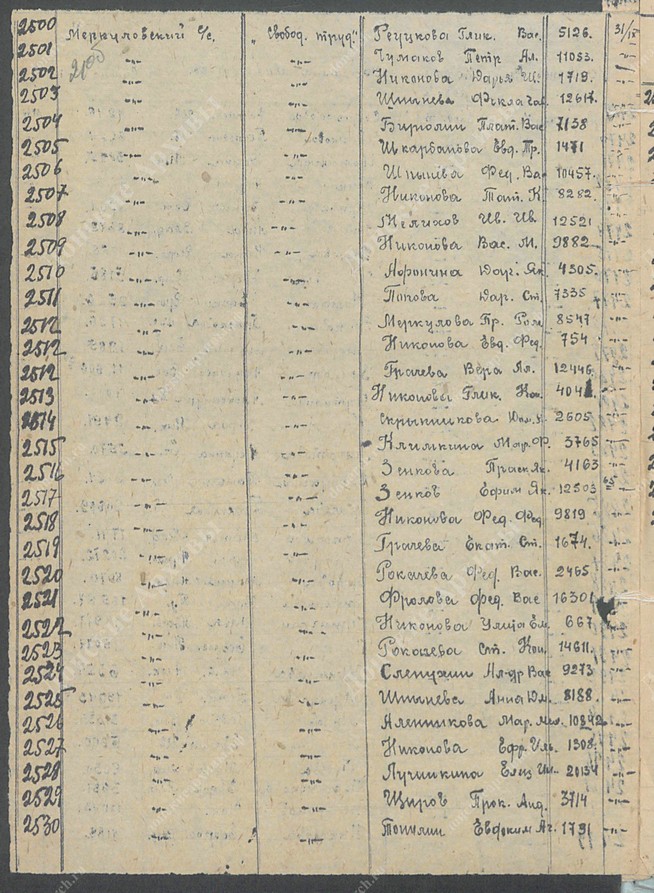 2500 Меркуловский с/с, "Свобод. труд" Реуцкова Глик. Вас. 5126. 31/
2501 2508 -"- -"- Чумаков Петр Ал. 11053.
2502 -"- -"- Никонова Дарья 1719. -"-
2503 -"- -"- Шпынева Фекла 12617. -"-
2504 -"- -"- Бирюлин Плат. Вас 7138 -"-
2505 -"- -"- Шкарбанова Евд. Пр. 1471 -"-
2506 -"- -"- Шпынева Фед. Ва 10457. -"-
2507 -"- -"- Никонова Тат. К. 8282. -"-
2508 -"- -"- Мелихов Ив. Ив 12521 -"-
2509 -"- -"- Никонова Вас. М. 9882 -"-
2510 -"- -"- Афонина Дар. Як 4305. -"-
2511 -"- -"- Попова Дар. Ст. 7335 -"-
2512 -"- -"- Меркулова Пр. Ром 8547 -"-
2512 -"- -"- Никонова Евд. Фед. 754 -"-
2512 -"- -"- Грачева Вера Ал. 12446. -"-
2513 -"- -"- Никонова Глик. Кон. 404 -"-
2514 -"- -"- Скрынникова 2605 -"-
2515 -"- -"- Климкина Мар. Ф. 3765 -"-
2516 -"- -"- Зенкова Праск Як. 4163 -"-
2517 -"- -"- Зенков Ефим Як. 12503 -"-
2518 -"- -"- Никонова Фед. Фед 9819 -"-
2519 -"- -"- Грачева Екат. Ст. 1674. -"-
2520 -"- -"- Рокачева Фед. Вас. 2465 -"-
2521 -"- -"- Фролова Фед. Вас 16301
2522 -"- -"- Никонова Улита Ем. 667 -"-
2523 -"- -"- Рокачева Ст. Кон. 14611. -"-
2524 -"- -"- Слепухин Ал-др Вас 9273 -"-
2525 -"- -"- Шпынева Анна Дм. 8188. -"-
2526 -"- -"- Аленникова Мар. 10842 -"-
2527 -"- -"- Никонова Ефр. Иль. 1308. -"-
2528 -"- -"- Лучинкина Елиз 20134 -"-
2529 -"- -"- Щиров Прок. Анд. 3714 -"-
2530 -"- -"- Топилин Евдоким Аг. 1791 -"-